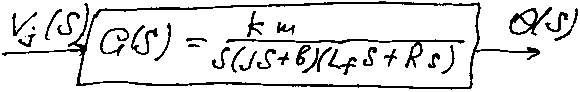 V_j(S) G(S) = \frac{k m}{S(JS+B)(L_f S+R s)} θ(S)